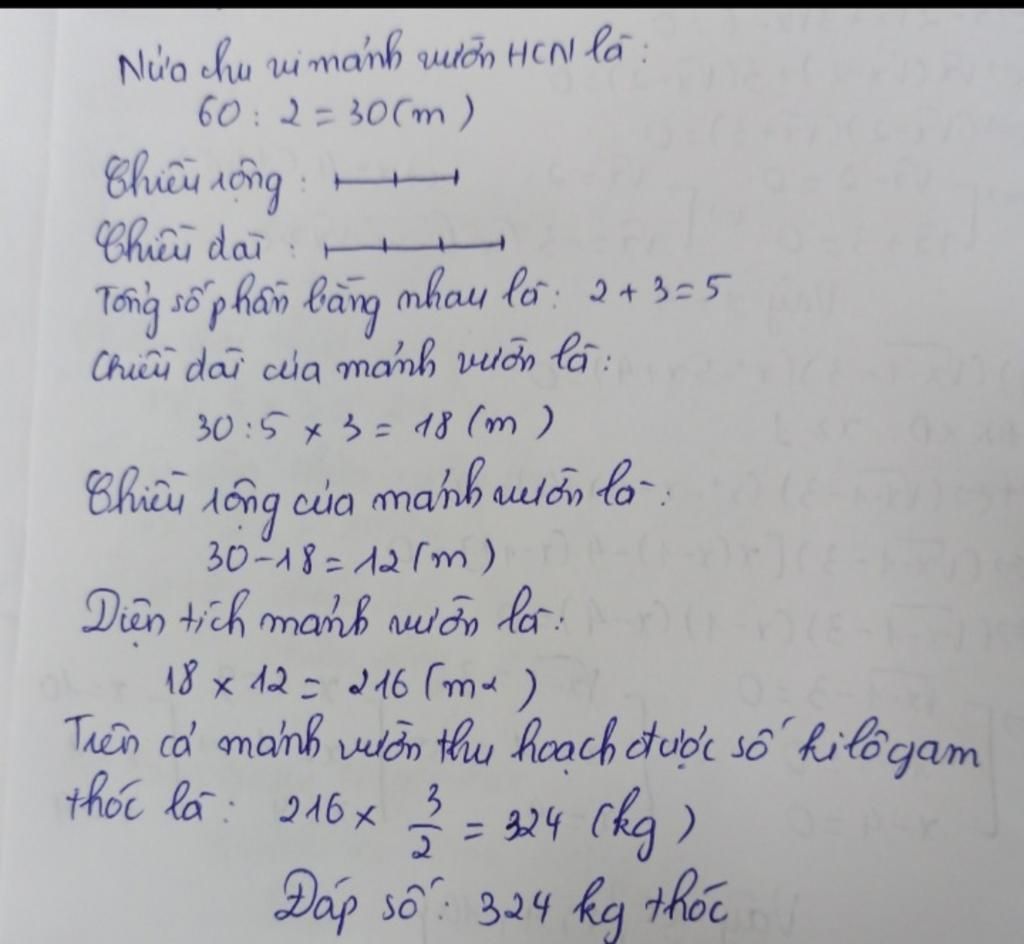 Nửa chu vi mảnh vườn HCN là:
60 : 2 = 30 (m)
Chiều rộng :
Chiều dài :
Tổng số phần bằng nhau là: 2 + 3 = 5
Chiều dài của mảnh vườn là:
30 : 5 × 3 = 18 (m)
Chiều rộng của mảnh vườn là:
30 - 18 = 12 (m)
Diện tích mảnh vườn là:
18 × 12 = 216 (m2)
Trên cả mảnh vườn thu hoạch được số kilôgam
thóc là: 216 × 3/2 = 324 (kg)
Đáp số: 324 kg thóc